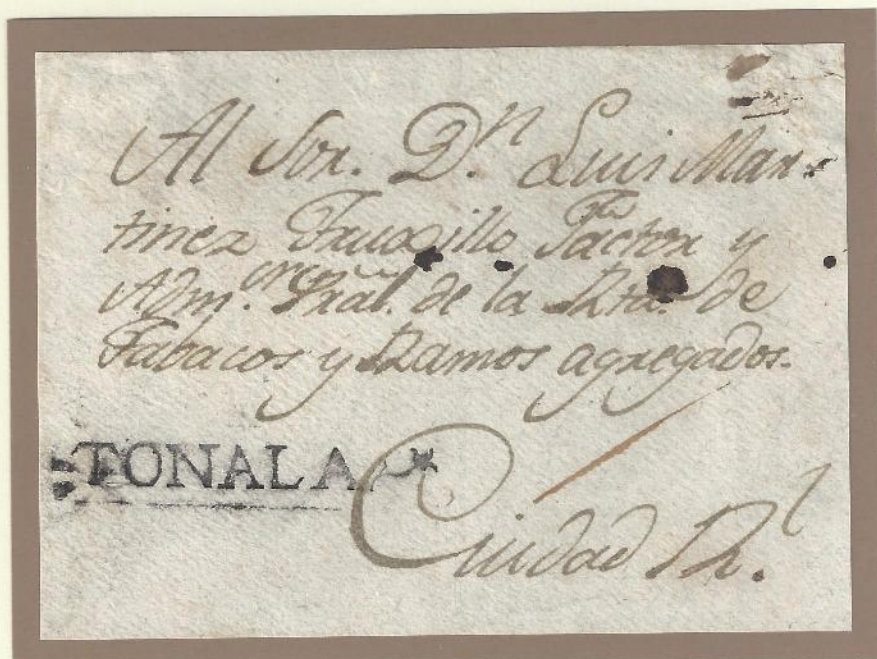 Al Sor. D.n Luis Mar-
tinez Truxillo Factor y
Adm.or Gral. de la Rta. de
Tabacos y Ramos agregados.
TONALA
Ciudad R.l